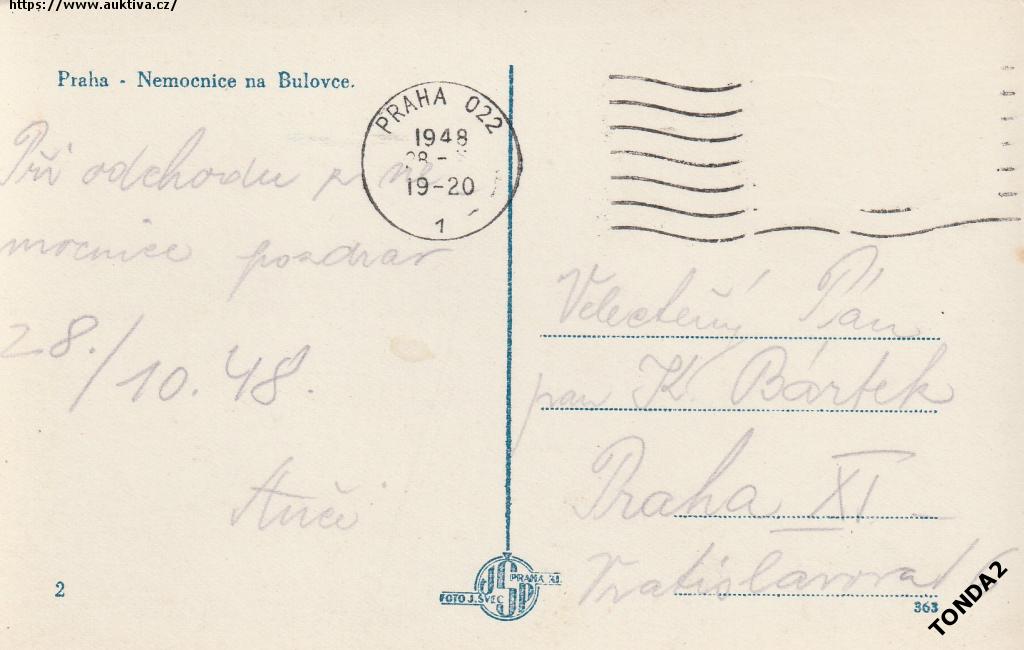 https://www.auktiva.cz/
Praha - Nemocnice na Bulovce.
PRAHA 022
1948
28 -
19-20
1
Při odchodu z ne
mocnice pozdrav
28./10. 48.
Anči
Velectěný Pán
pan K. Bártek
Praha XI
Vratislavova
2
JSP
PRAHA XI.
FOTO J. ŠVEC
363
TONDA2